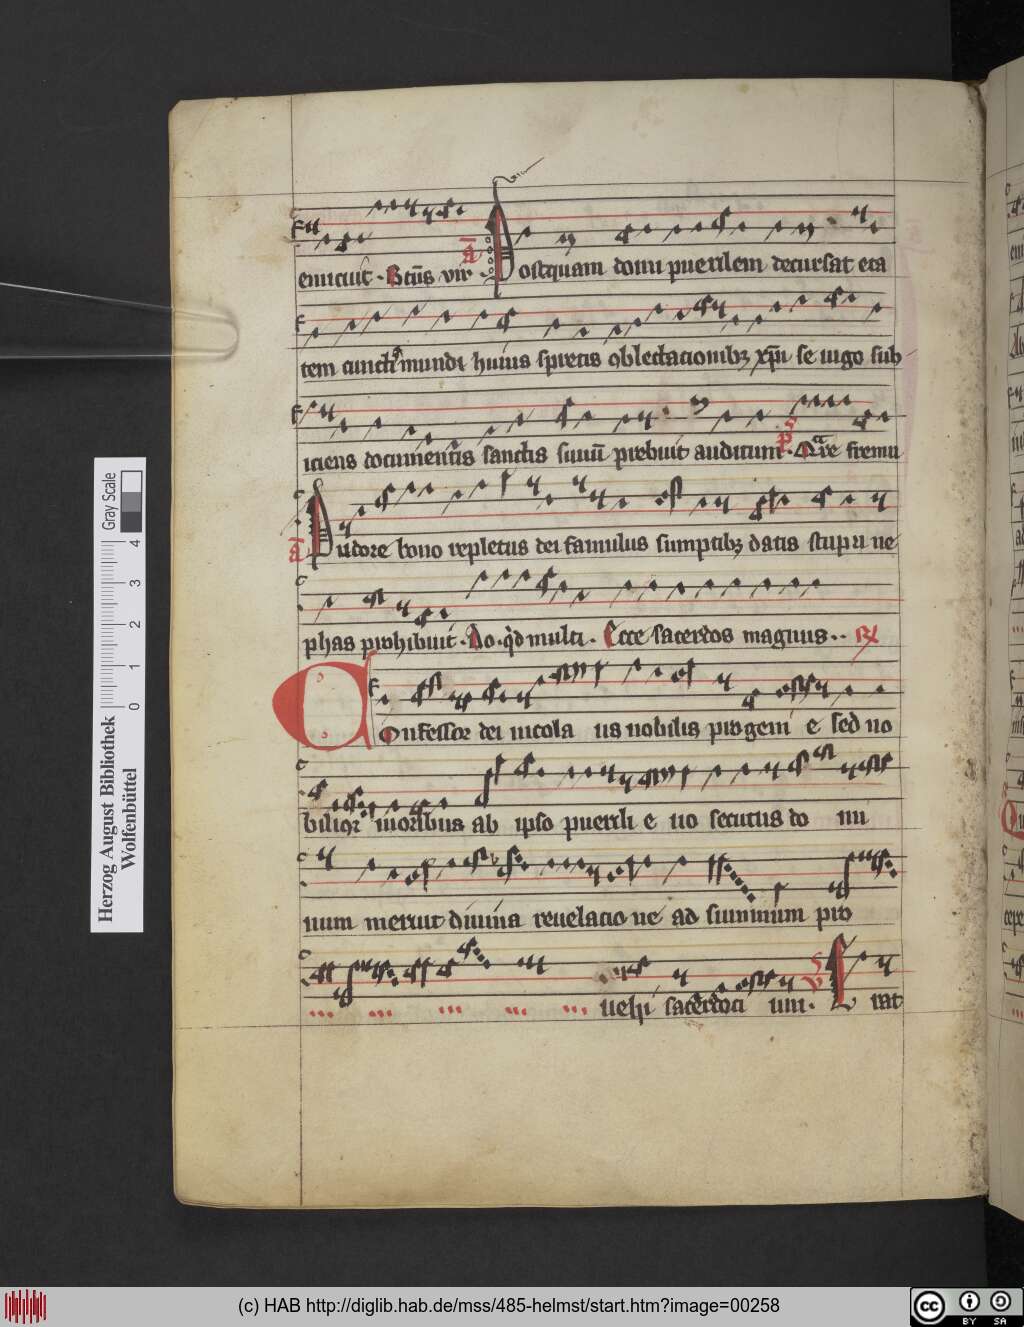 emicuit. Btūs vir. A Postquam domi puerilem decursat eta
tem cuncti mundi huius spretis oblectacionibꝫ xp̄i se iugo sub
iciens documentis sanctis suum prebuit auditum. p̄s Qare fremu
A Pudore bono repletus dei famulus sumptibꝫ datis stupri ne
phas prohibuit. Do. qd multi. Ecce sacerdos magnus. R
Confessor dei nicola us nobilis progeni e sed no
bilior moribus ab ipso puerili e uo secutus do mi
num meruit diuina reuelacio ne ad summum pro
uehi sacerdoci um. V Erat
Gray Scale
0 1 2 3 4
Herzog August Bibliothek
Wolfenbüttel
(c) HAB http://diglib.hab.de/mss/485-helmst/start.htm?image=00258
cc BY SA